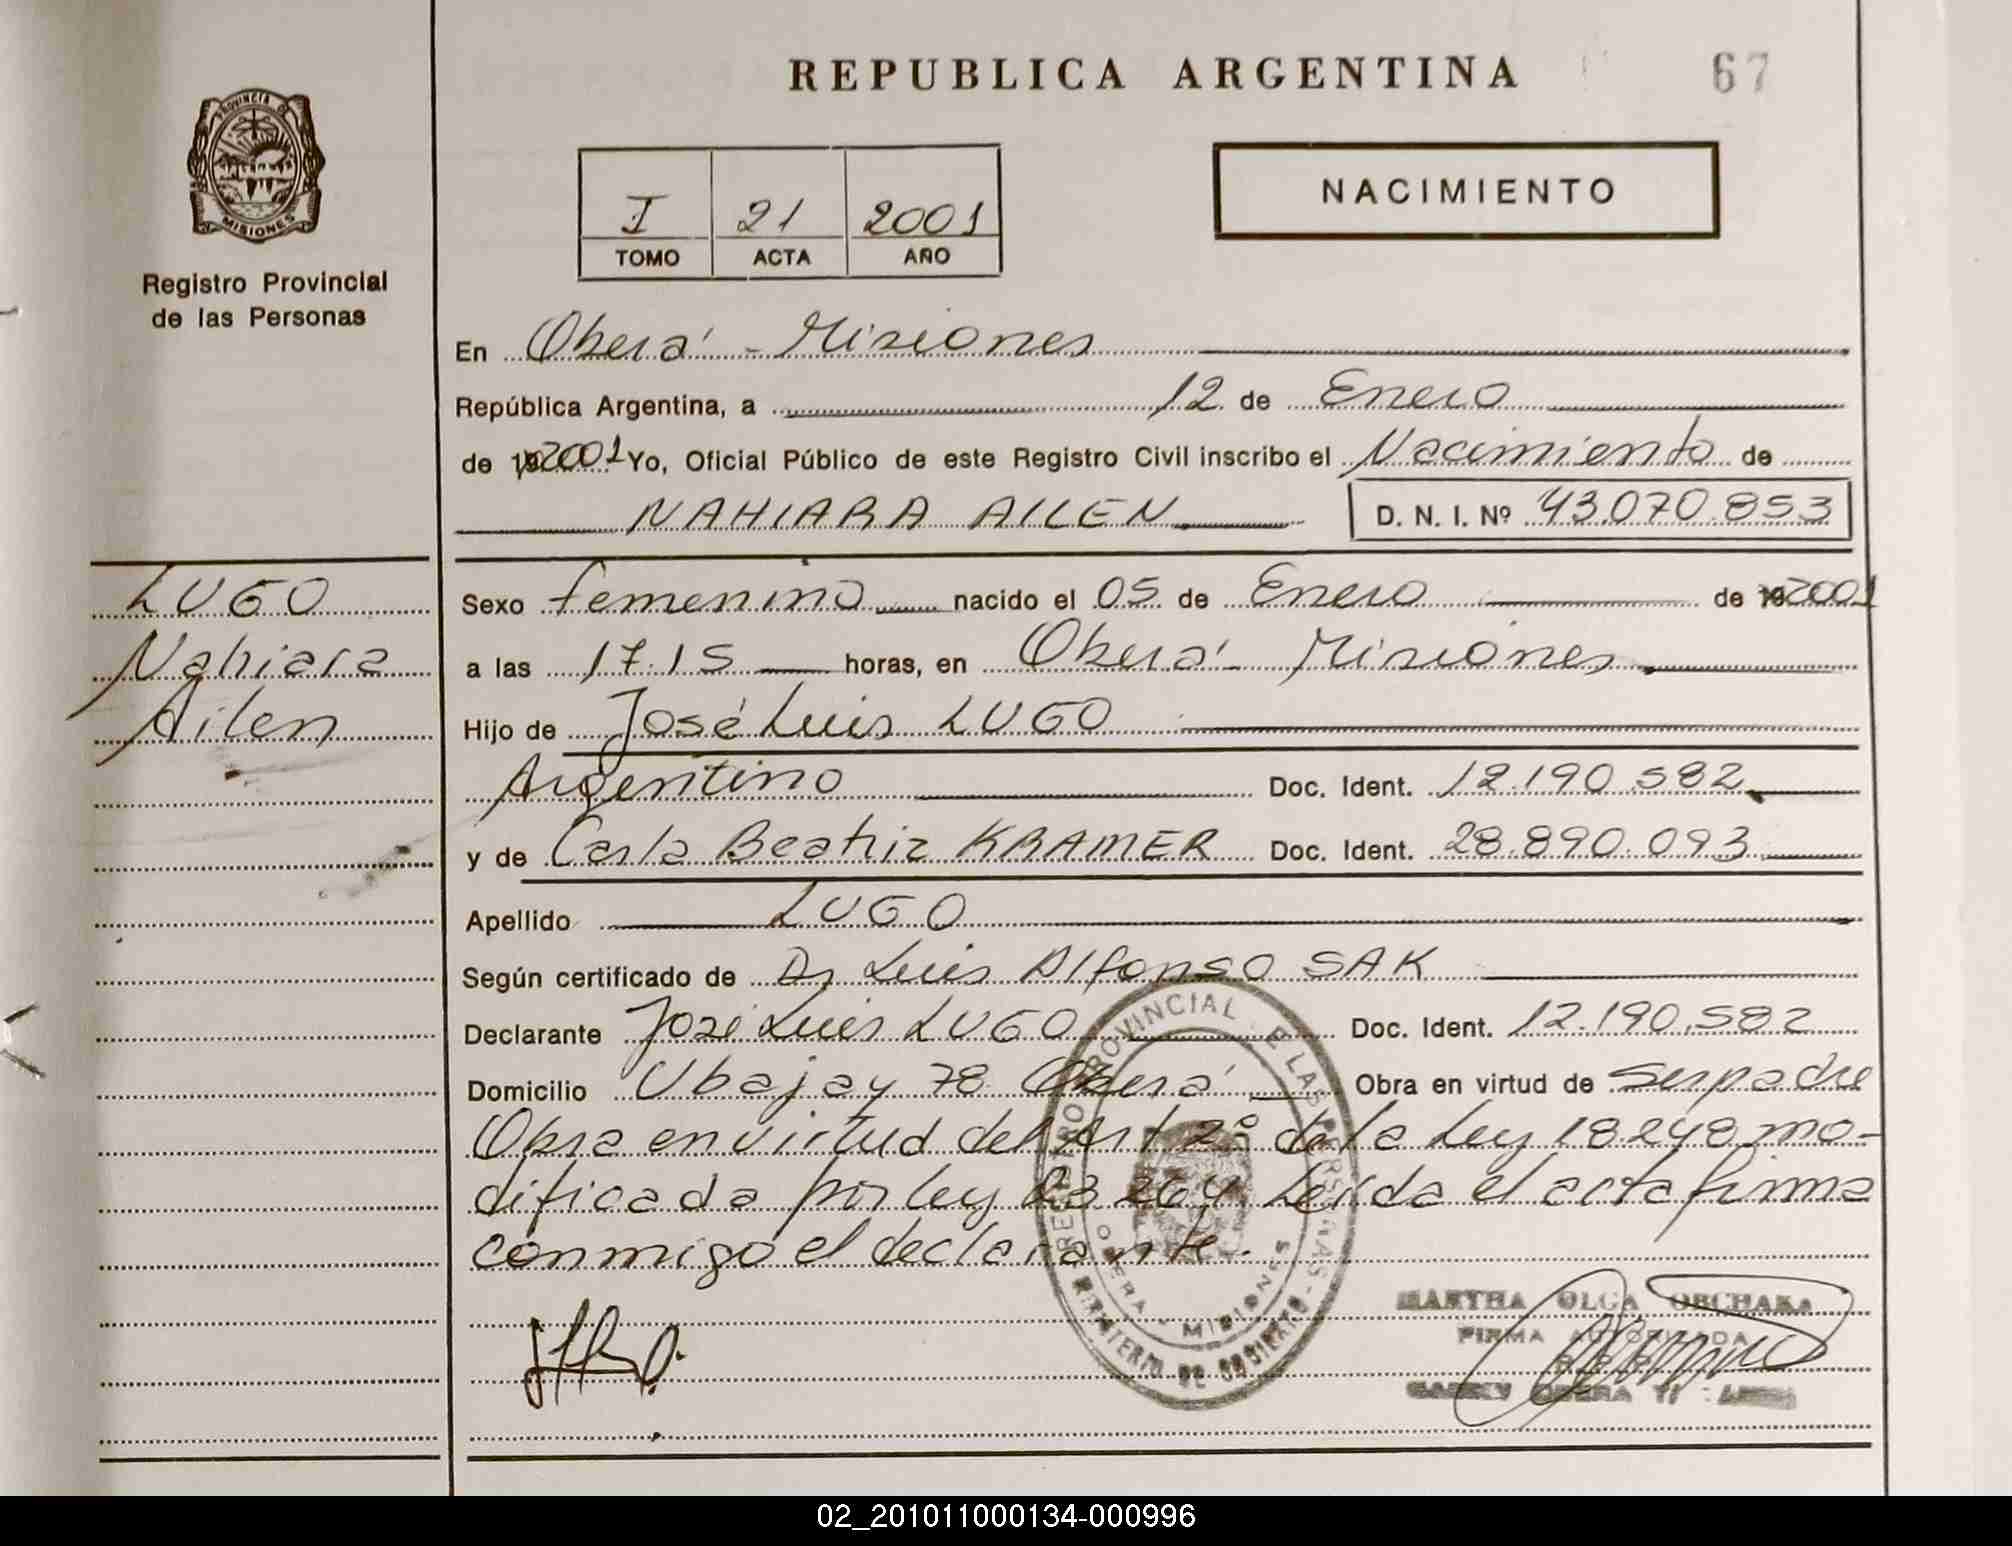 REPUBLICA ARGENTINA
67
PROVINCIA DE
MISIONES
Registro Provincial
de las Personas
I 21 2001
TOMO ACTA AÑO
NACIMIENTO
En Oberá - Misiones
República Argentina, a 12 de Enero
de 192001 Yo, Oficial Público de este Registro Civil inscribo el Nacimiento de
NAHIARA AILEN D. N. I. Nº 43.070.853
LUGO
Nahiara
Ailen
Sexo femenino nacido el 05 de Enero de 192001
a las 17.15 horas, en Oberá - Misiones
Hijo de José Luis LUGO
Argentino Doc. Ident. 12.190.582
y de Carla Beatriz KRAMER Doc. Ident. 28.890.093
Apellido LUGO
Según certificado de Dr Luis Alfonso SAK
Declarante José Luis LUGO Doc. Ident. 12.190.582
Domicilio Ubajay 78 Oberá Obra en virtud de ser padre
Obra en virtud del Art 2º de la Ley 18.248 mo-
dificada por ley 23.264 Leída el acta firma
conmigo el declarante.
REGISTRO PROVINCIAL DE LAS PERSONAS -
MINISTERIO DE GOBIERNO -
OBERA - MISIONES
MARTHA OLGA ORCHAKA
FIRMA AUTORIZADA
OBERA
02_201011000134-000996